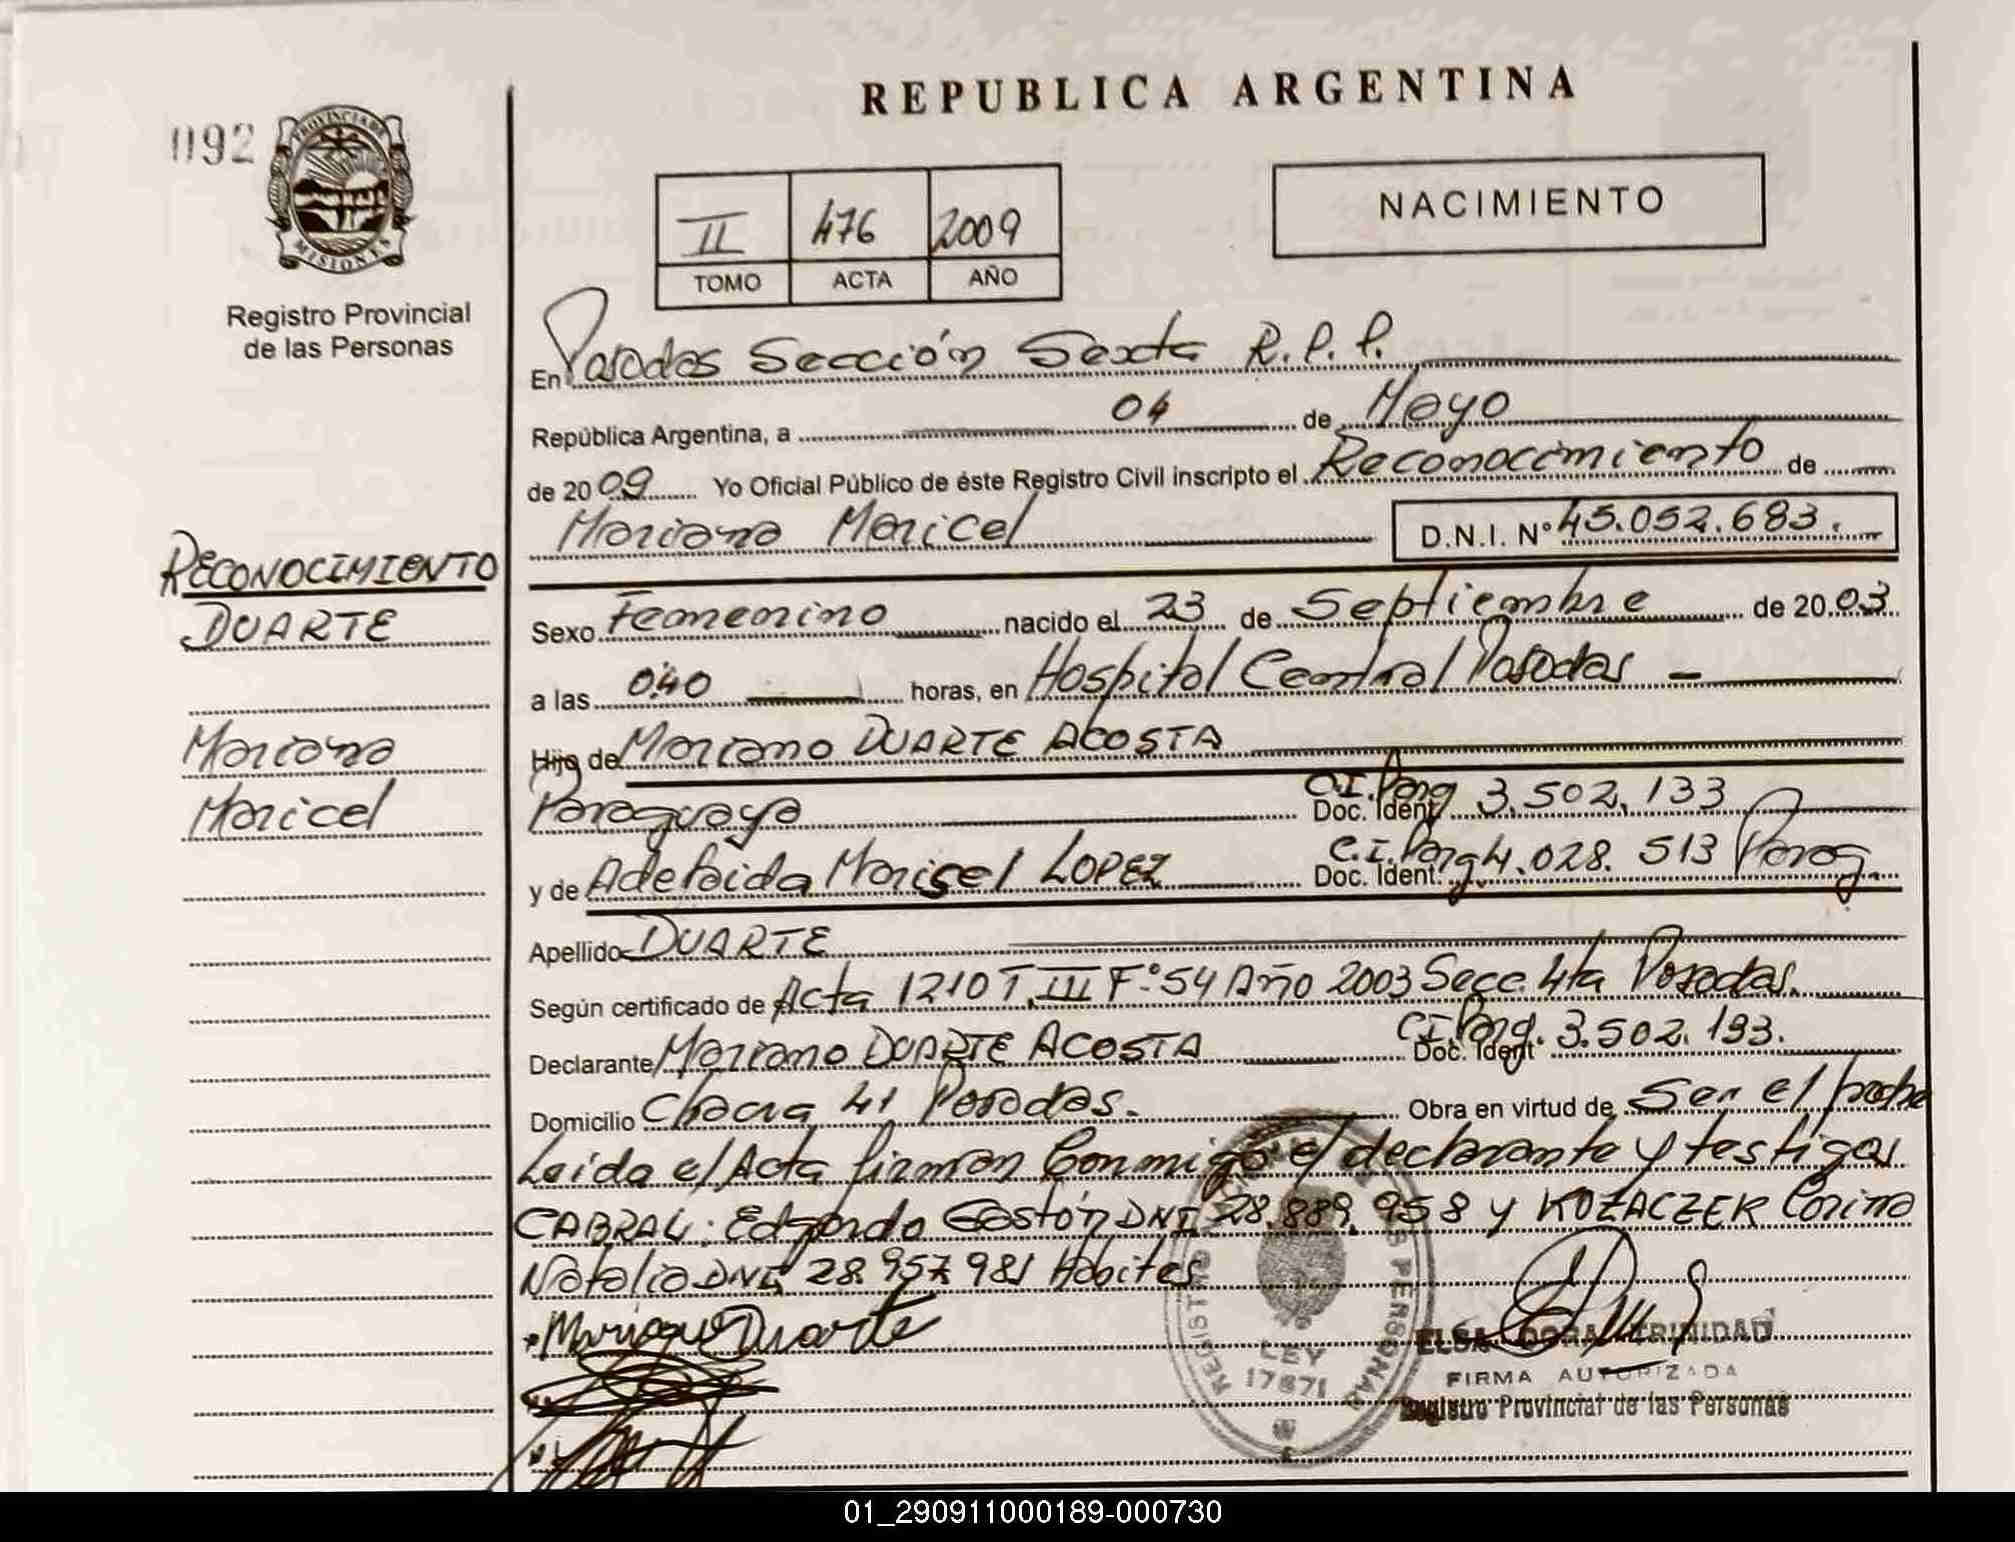 REPUBLICA ARGENTINA
092
PROVINCIA DE
MISIONES
Registro Provincial
de las Personas
II 476 2009
TOMO ACTA AÑO
NACIMIENTO
En Posadas Sección Sexta R.P.P.
República Argentina, a 04 de Mayo
de 2009 Yo Oficial Público de éste Registro Civil inscripto el Reconocimiento de
Mariana Maricel D.N.I. Nº 45.052.683.
RECONOCIMIENTO
DUARTE
Mariana
Maricel
Sexo Femenino nacido el 23 de Septiembre de 2003
a las 0:40 horas, en Hospital Central Posadas
Hijo de Mariano DUARTE ACOSTA
Paraguaya C.I. Parg Doc. Ident. 3.502.133
y de Adelaida Marisel LOPEZ C.I. Parg Doc. Ident. 4.028.513 Parag.
Apellido DUARTE
Según certificado de Acta 1210 T.III Fº 54 Año 2003 Secc. 4ta Posadas.
Declarante Mariano DUARTE ACOSTA C.I. Parg. Doc. Ident 3.502.193.
Domicilio Chacra 41 Posadas. Obra en virtud de Ser el padre
Leida el Acta firman Conmigo el declarante y testigos
CABRAL: Edgardo Gastón DNI 28.889.958 y KOZACZEK Corina
Natalia DNI 28.957.981 Habites
Mariano Duarte
REGISTRO PERSONAS
LEY
17671
ELSA DORA TRINIDAD
FIRMA AUTORIZADA
Registro Provincial de las Personas
01_290911000189-000730